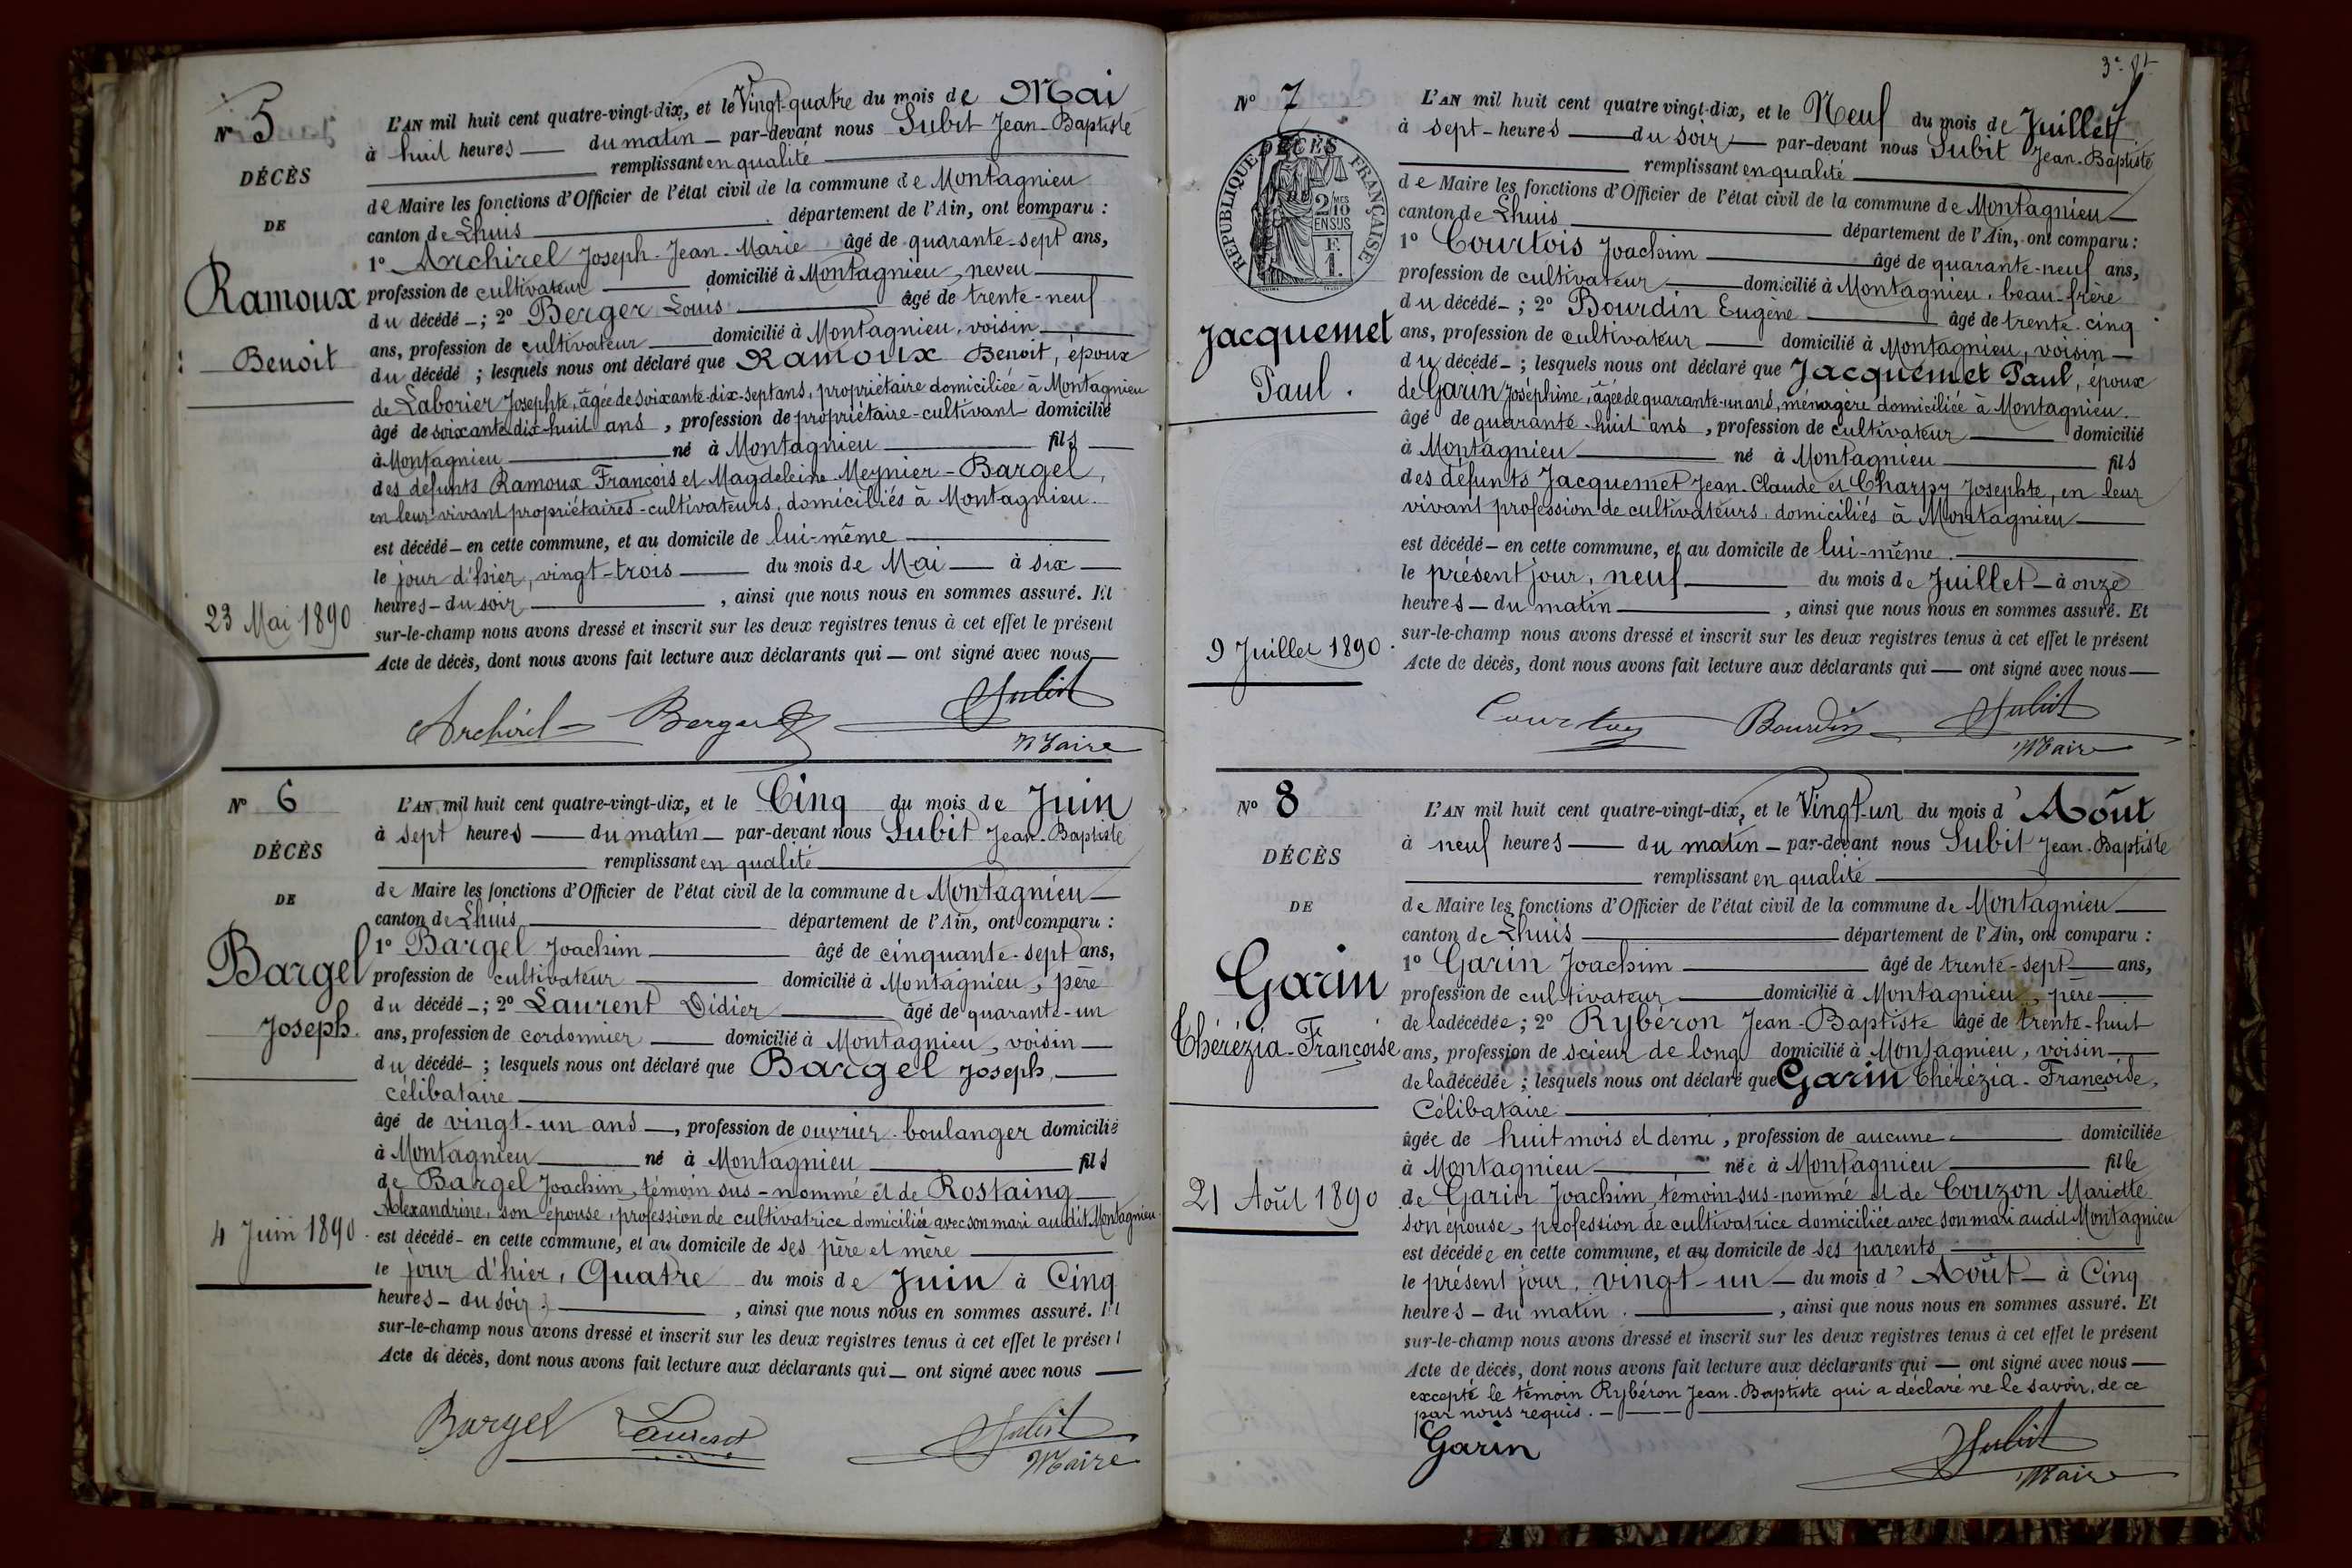 N° 5
DÉCÈS
DE
Ramoux
Benoit
23 Mai 1890
L'AN mil huit cent quatre-vingt-dix, et le Vingt-quatre du mois de Mai
à huit heures du matin par-devant nous Subit Jean-Baptiste
remplissant en qualité
de Maire les fonctions d'Officier de l'état civil de la commune de Montagnieu
canton de Lhuis département de l'Ain, ont comparu :
1° Archirel Joseph-Jean-Marie âgé de quarante-sept ans,
profession de cultivateur domicilié à Montagnieu, neveu
du décédé ; 2° Berger Louis âgé de trente-neuf
ans, profession de cultivateur domicilié à Montagnieu, voisin
du décédé ; lesquels nous ont déclaré que Ramoux Benoit, époux
de Laborier Josephte, âgée de soixante-dix-sept ans, propriétaire domiciliée à Montagnieu
âgé de soixante-dix-huit ans, profession de propriétaire-cultivant domicilié
à Montagnieu né à Montagnieu fils
des défunts Ramoux François et Magdeleine Meynier-Bargel,
en leur vivant propriétaires-cultivateurs, domiciliés à Montagnieu.
est décédé en cette commune, et au domicile de lui-même
le jour d'hier, vingt-trois du mois de Mai à six
heures du soir, ainsi que nous nous en sommes assuré. Et
sur-le-champ nous avons dressé et inscrit sur les deux registres tenus à cet effet le présent
Acte de décès, dont nous avons fait lecture aux déclarants qui ont signé avec nous
Archirel Berger Subit
Maire
N° 6
DÉCÈS
DE
Bargel
Joseph.
4 Juin 1890.
L'AN mil huit cent quatre-vingt-dix, et le Cinq du mois de Juin
à sept heures du matin par-devant nous Subit Jean-Baptiste
remplissant en qualité
de Maire les fonctions d'Officier de l'état civil de la commune de Montagnieu
canton de Lhuis département de l'Ain, ont comparu :
1° Bargel Joachim âgé de cinquante-sept ans,
profession de cultivateur domicilié à Montagnieu, père
du décédé ; 2° Laurent Didier âgé de quarante-un
ans, profession de cordonnier domicilié à Montagnieu, voisin
du décédé ; lesquels nous ont déclaré que Bargel Joseph,
célibataire
âgé de vingt-un ans, profession de ouvrier-boulanger domicilié
à Montagnieu né à Montagnieu fils
de Bargel Joachim, témoin sus-nommé et de Rostaing
Alexandrine, son épouse, profession de cultivatrice domiciliée avec son mari audit Montagnieu.
est décédé en cette commune, et au domicile de ses père et mère
le jour d'hier, Quatre du mois de Juin à Cinq
heures du soir, ainsi que nous nous en sommes assuré. Et
sur-le-champ nous avons dressé et inscrit sur les deux registres tenus à cet effet le présent
Acte de décès, dont nous avons fait lecture aux déclarants qui ont signé avec nous
Bargel Laurent Subit
Maire
N° 7
DÉCÈS
DE
RÉPUBLIQUE FRANÇAISE
2/10 MES
EN SUS
F.
1.
Jacquemet
Paul.
9 Juillet 1890.
L'AN mil huit cent quatre vingt-dix, et le Neuf du mois de Juillet
à sept-heures du soir par-devant nous Subit Jean-Baptiste
remplissant en qualité
de Maire les fonctions d'Officier de l'état civil de la commune de Montagnieu
canton de Lhuis département de l'Ain, ont comparu :
1° Courtois Joachim âgé de quarante-neuf ans,
profession de cultivateur domicilié à Montagnieu, beau-frère
du décédé ; 2° Bourdin Eugène âgé de trente-cinq
ans, profession de cultivateur domicilié à Montagnieu, voisin
du décédé ; lesquels nous ont déclaré que Jacquemet Paul, époux
de Garin Joséphine, âgée de quarante-un ans, ménagère domiciliée à Montagnieu.
âgé de quarante-huit ans, profession de cultivateur domicilié
à Montagnieu né à Montagnieu fils
des défunts Jacquemet Jean-Claude et Charpy Josephte, en leur
vivant profession de cultivateurs, domiciliés à Montagnieu
est décédé en cette commune, et au domicile de lui-même.
le présent jour, neuf du mois de Juillet à onze
heures du matin, ainsi que nous nous en sommes assuré. Et
sur-le-champ nous avons dressé et inscrit sur les deux registres tenus à cet effet le présent
Acte de décès, dont nous avons fait lecture aux déclarants qui ont signé avec nous
Courtois Bourdin Subit
Maire
N° 8
DÉCÈS
DE
Garin
Thérézia-Françoise
21 Août 1890
L'AN mil huit cent quatre-vingt-dix, et le Vingt-un du mois d'Août
à neuf heures du matin par-devant nous Subit Jean-Baptiste
remplissant en qualité
de Maire les fonctions d'Officier de l'état civil de la commune de Montagnieu
canton de Lhuis département de l'Ain, ont comparu :
1° Garin Joachim âgé de trente-sept ans,
profession de cultivateur domicilié à Montagnieu, père
de la décédée ; 2° Rybéron Jean-Baptiste âgé de trente-huit
ans, profession de scieur de long domicilié à Montagnieu, voisin
de la décédée ; lesquels nous ont déclaré que Garin Thérézia-Françoise,
Célibataire
âgée de huit mois et demi, profession de aucune domiciliée
à Montagnieu née à Montagnieu fille
de Garin Joachim, témoin sus-nommé et de Couzon Mariette
son épouse, profession de cultivatrice domiciliée avec son mari audit Montagnieu
est décédée en cette commune, et au domicile de ses parents
le présent jour, vingt-un du mois d'Août à Cinq
heures du matin, ainsi que nous nous en sommes assuré. Et
sur-le-champ nous avons dressé et inscrit sur les deux registres tenus à cet effet le présent
Acte de décès, dont nous avons fait lecture aux déclarants qui ont signé avec nous
excepté le témoin Rybéron Jean-Baptiste qui a déclaré ne le savoir, de ce
par nous requis.
Garin Subit
Maire